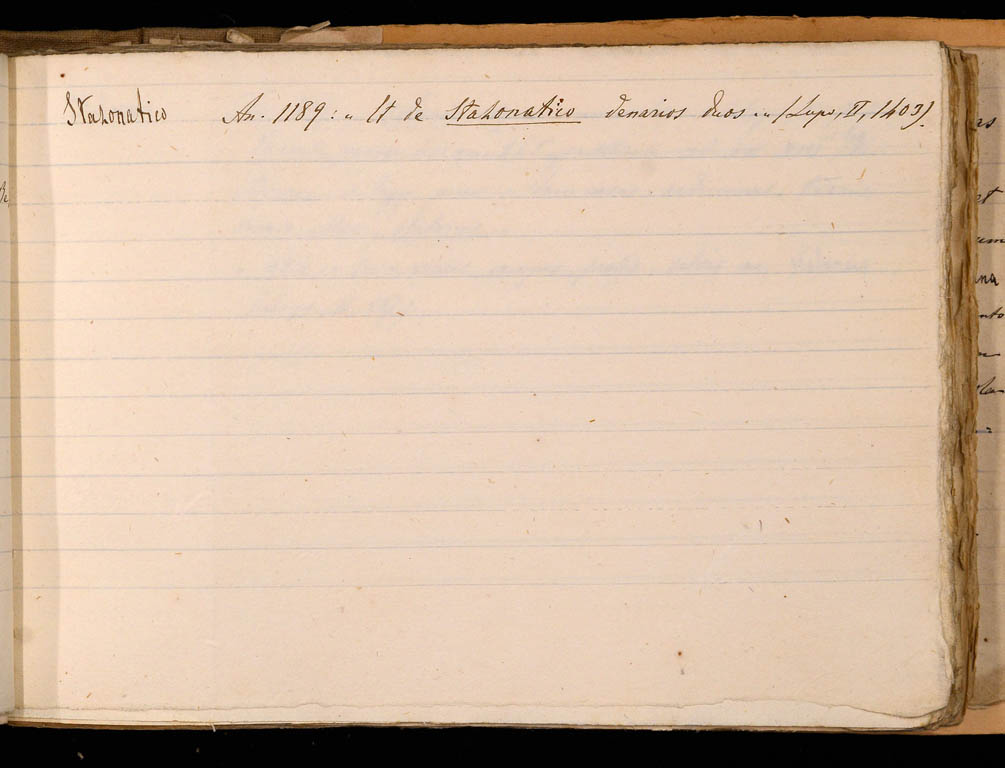 Stazonatico An. 1189: " Et de Stazonatico denarios duos .. " (Lupo, II, 1403).